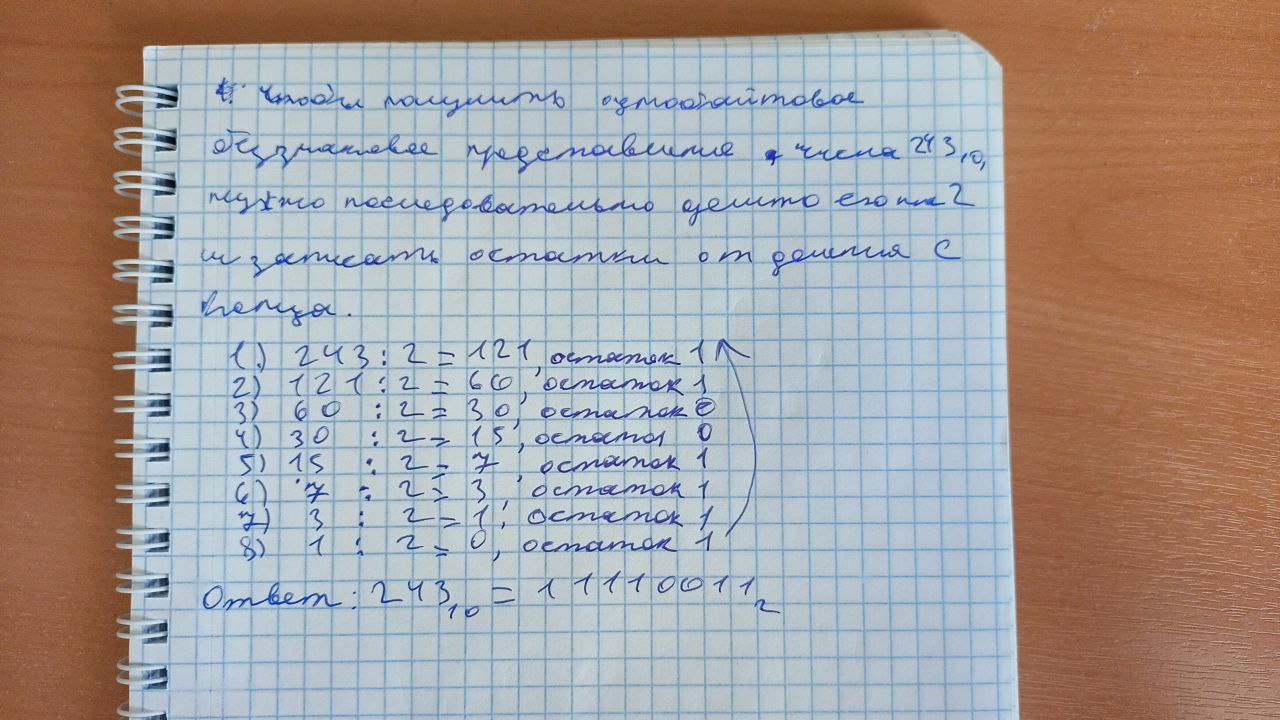 Чтобы получить однобайтовое
беззнаковое представление числа 243₁₀,
нужно последовательно делить его на 2
и записать остатки от деления с
конца.
1) 243 : 2 = 121, остаток 1
2) 121 : 2 = 60, остаток 1
3) 60 : 2 = 30, остаток 0
4) 30 : 2 = 15, остаток 0
5) 15 : 2 = 7 остаток 1
6) 7 : 2 = 3, остаток 1
7) 3 : 2 = 1, остаток 1
8) 1 : 2 = 0, остаток 1
Ответ: 243₁₀ = 11110011₂